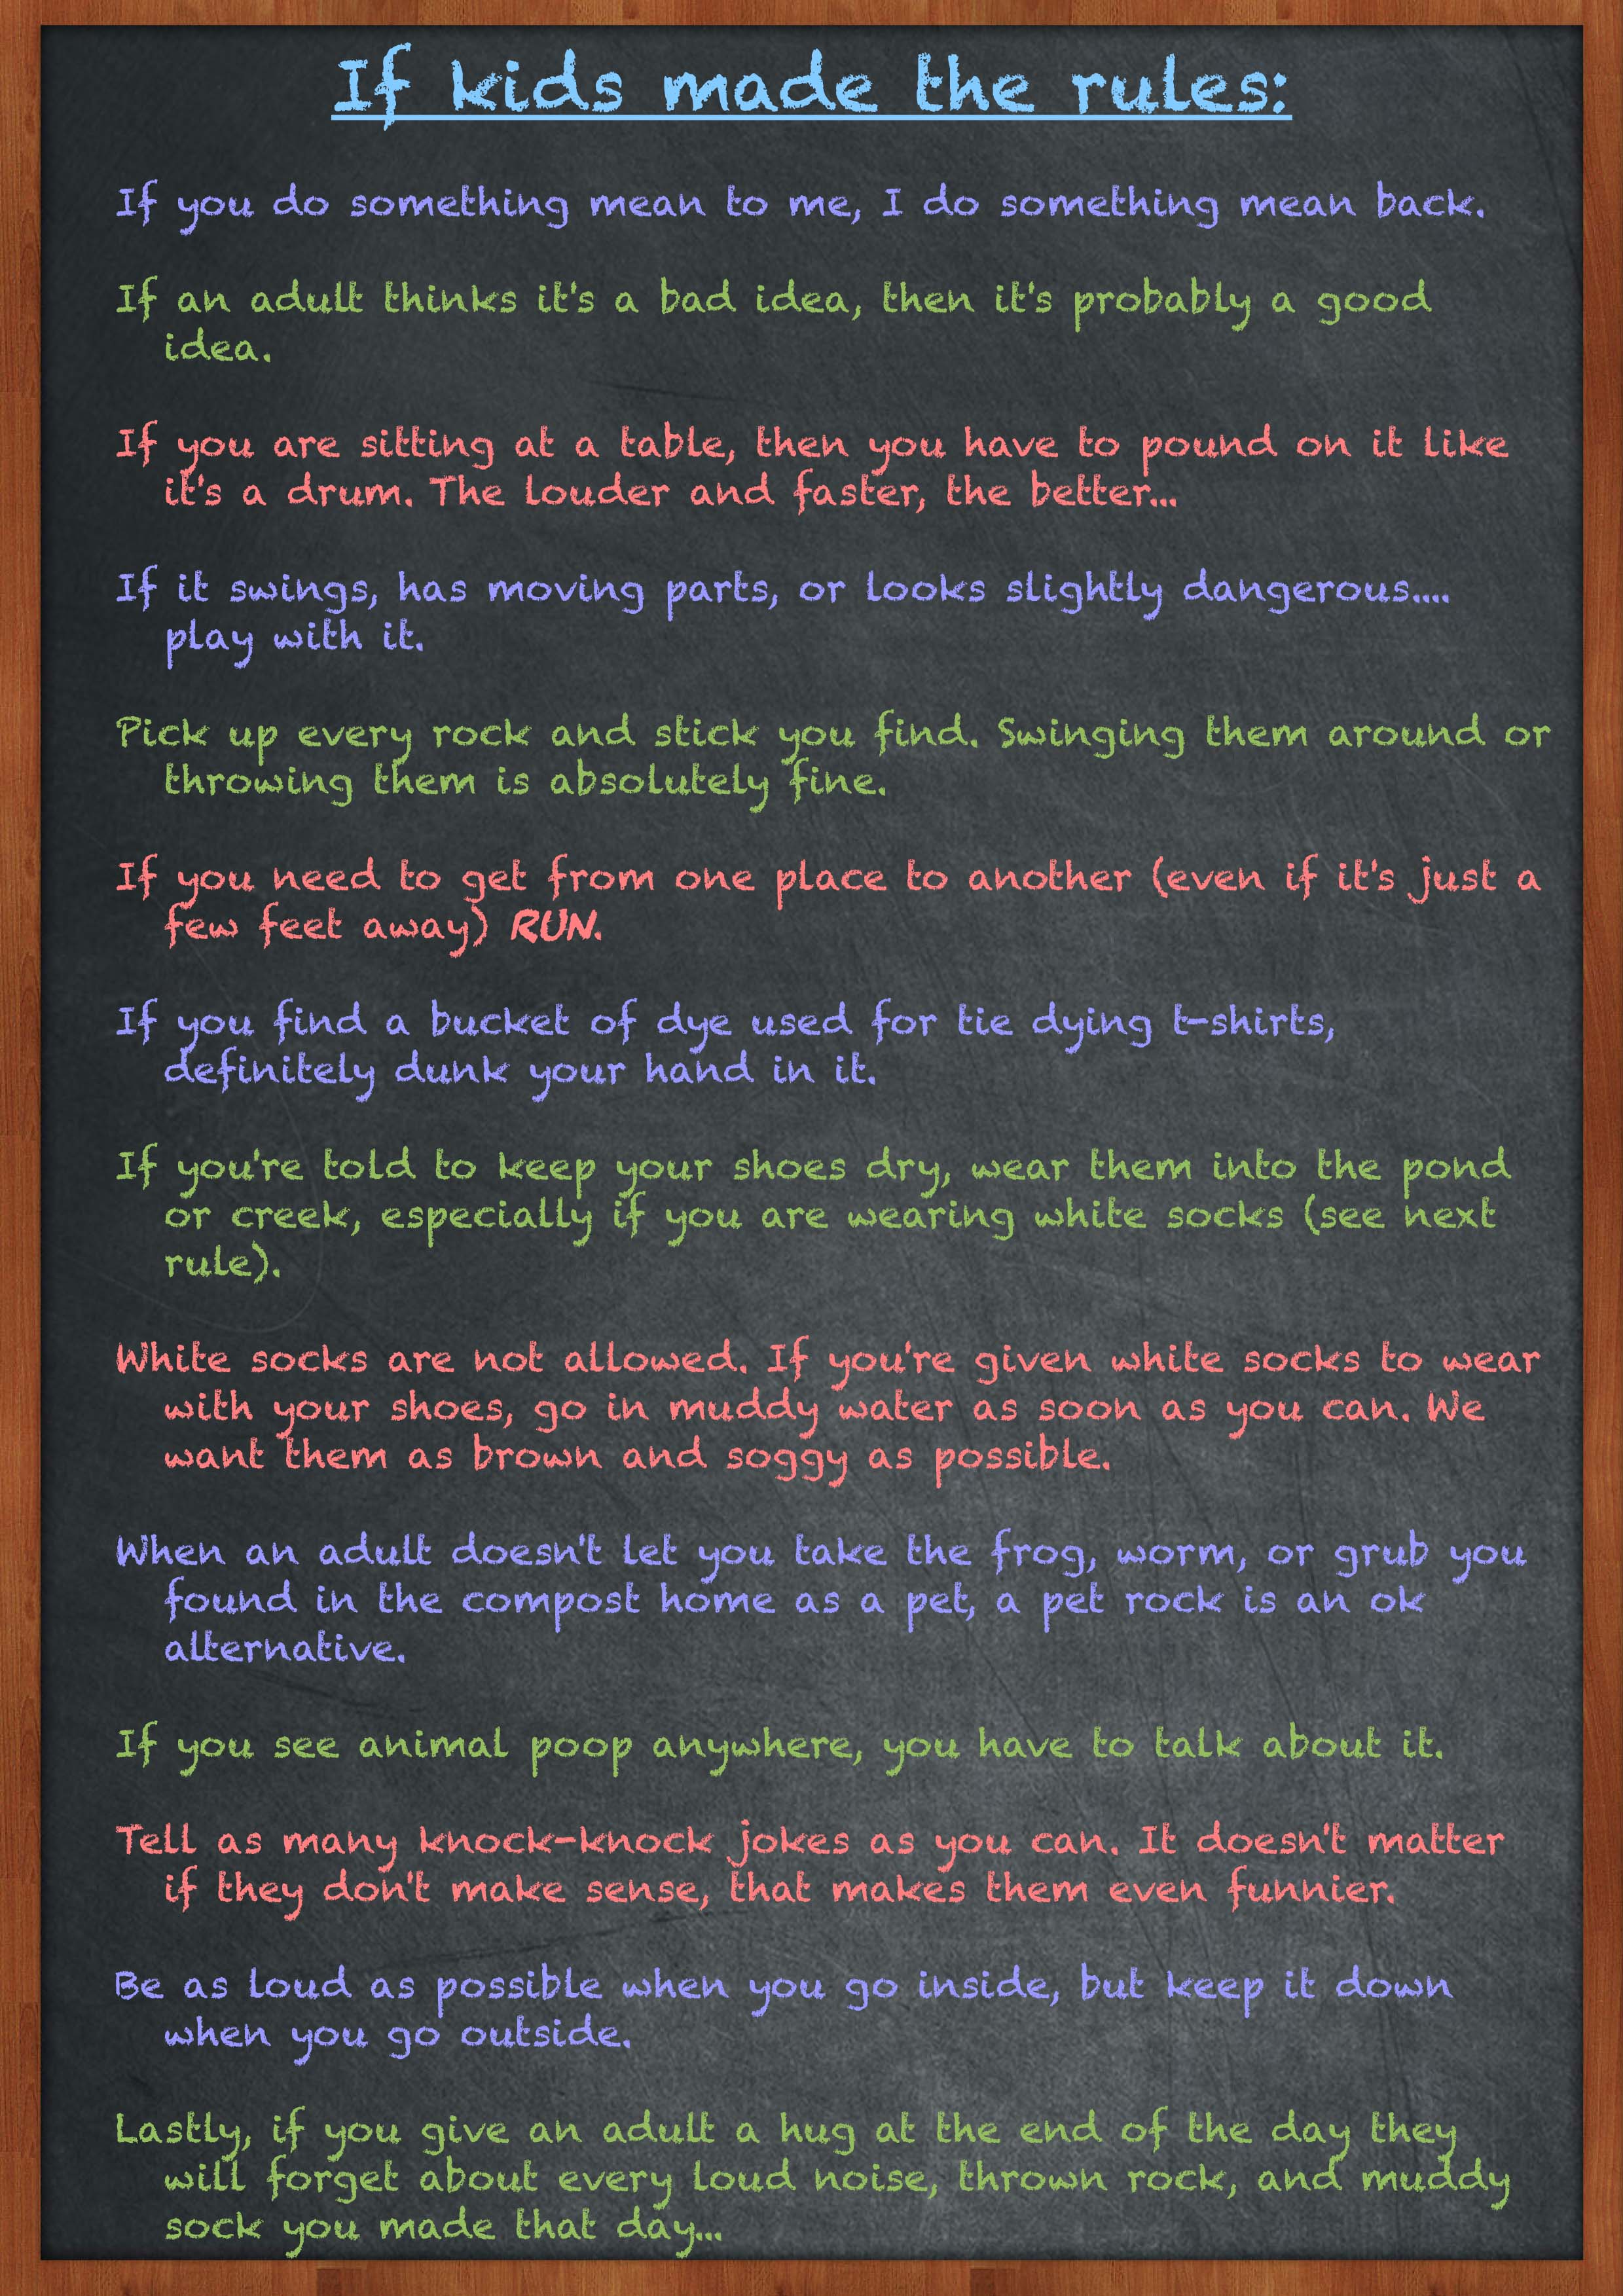 If kids made the rules:
If you do something mean to me, I do something mean back.
If an adult thinks it's a bad idea, then it's probably a good
idea.
If you are sitting at a table, then you have to pound on it like
it's a drum. The louder and faster, the better...
If it swings, has moving parts, or looks slightly dangerous....
play with it.
Pick up every rock and stick you find. Swinging them around or
throwing them is absolutely fine.
If you need to get from one place to another (even if it's just a
few feet away) RUN.
If you find a bucket of dye used for tie dying t-shirts,
definitely dunk your hand in it.
If you're told to keep your shoes dry, wear them into the pond
or creek, especially if you are wearing white socks (see next
rule).
White socks are not allowed. If you're given white socks to wear
with your shoes, go in muddy water as soon as you can. We
want them as brown and soggy as possible.
When an adult doesn't let you take the frog, worm, or grub you
found in the compost home as a pet, a pet rock is an ok
alternative.
If you see animal poop anywhere, you have to talk about it.
Tell as many knock-knock jokes as you can. It doesn't matter
if they don't make sense, that makes them even funnier.
Be as loud as possible when you go inside, but keep it down
when you go outside.
Lastly, if you give an adult a hug at the end of the day they
will forget about every loud noise, thrown rock, and muddy
sock you made that day...